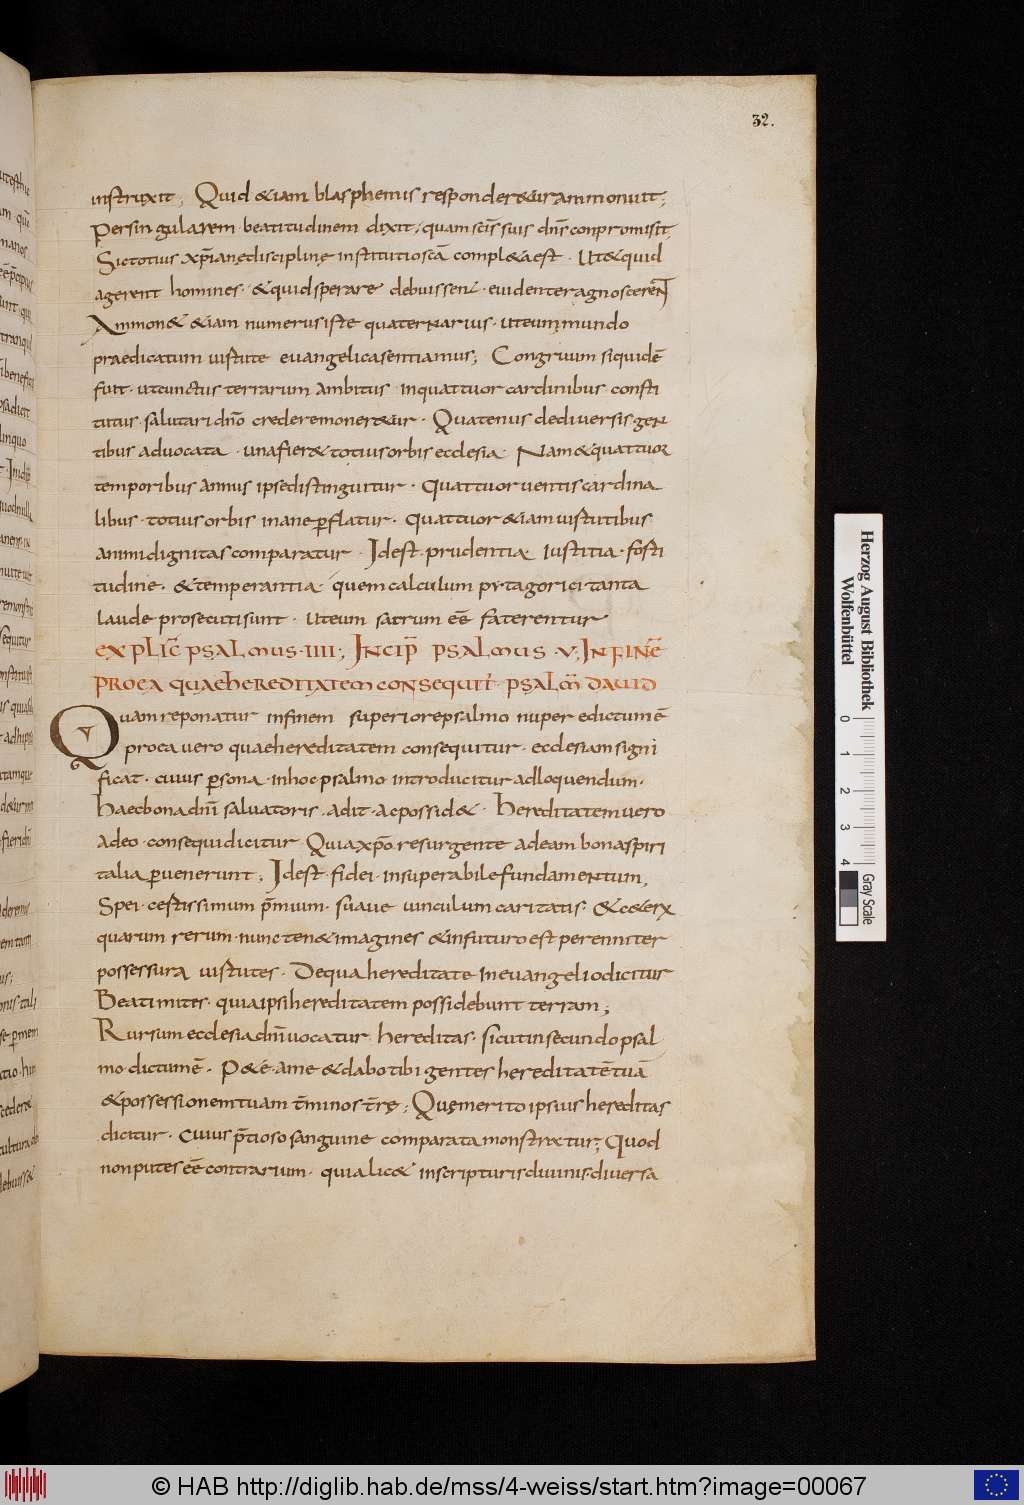 32.
instruxit; Quid &iam blasphemis responder&ur ammonuit;
Per singularem beatitudinem dixit, quam scīs suis dn̄s conpromisit,
Sic totius xp̄ianę disciplinę institutio scā compl&a est · Ut & quid
agerent homines · & quid sperare debuissent · evidenter agnoscerent
Ammon& &iam numerus iste quaternarius · ut eum mundo
praedicatum virtute evangelica sentiamus; Congruum siquidē
fuit · ut cunctus terrarum ambitus in quattuor cardinibus consti
tutus salutari dn̄o credere moner&ur · Quatenus de diversis gen
tibus advocata · una fier& totius orbis ecclesia Nam & quattuor
temporibus annus ipse distinguitur · Quattuor ventis cardina
libus · totius orbis inane p̱flatur · quattuor &iam virtutibus
animi dignitas comparatur · Idest · prudentia iustitia · forti
tudine · & temperantia · quem calculum pytagorici tanta
laude prosecuti sunt · ut eum sacrum eē faterentur
EXPLIC̄ PSALMUS · IIII; INCIP̄ PSALMUS · V; IN FINĒ
PRO EA QUAE HEREDITATEM CONSEQUIT̄ · PSALM̄ DAUID
Quam reponatur in finem superiore psalmo nuper edictum ē
pro ea vero quae hereditatem consequitur · ecclesiam signi
ficat · cuius p̱sona · in hoc psalmo introducitur ad loquendum ·
Haec bona dn̄i salvatoris · adit · ac possid& · Hereditatem vero
adeo · consequi dicitur Quia xp̄o resurgente ad eam bona spiri
talia p̱venerunt; Idest · fidei · insuperabile fundamentum,
Spei · certissimum p̄mium · suave vinculum caritatis · & c&erx
quarum rerum · nunc ten& imagines & in futuro est perenniter
possessura virtutes · De qua hereditate in evangelio dicitur
Beati mites · quia ipsi hereditatem possidebunt terram;
Rursum ecclesia dn̄i vocatur hereditas · sicut in secundo psal
mo · dictum ē · P&e · a me & dabo tibi gentes hereditatē tuā
& possessionem tuam t̄minos t̄rę; Quę merito ipsius hereditas
dicitur · cuius p̄tioso sanguine comparata monstratur; Quod
non putes eē contrarium · quia lic& in scripturis divinis · diversa
Herzog August Bibliothek
Wolfenbüttel
0 1 2 3 4
Gray Scale
© HAB http://diglib.hab.de/mss/4-weiss/start.htm?image=00067